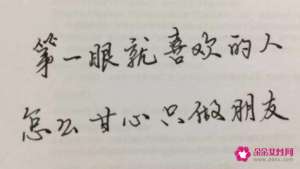 第一眼就喜欢的人
怎么甘心只做朋友
朵朵女性网